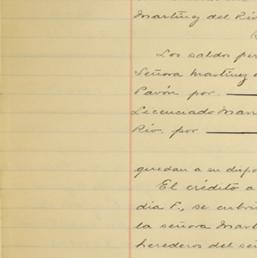 Martínez del Río
Los saldos per
Señora Martínez d
Pavón por.
Licenciado Man
Río. por
quedan a su dispo
El crédito a
día 1°, se cubri
la señora Mart
herederos del señ